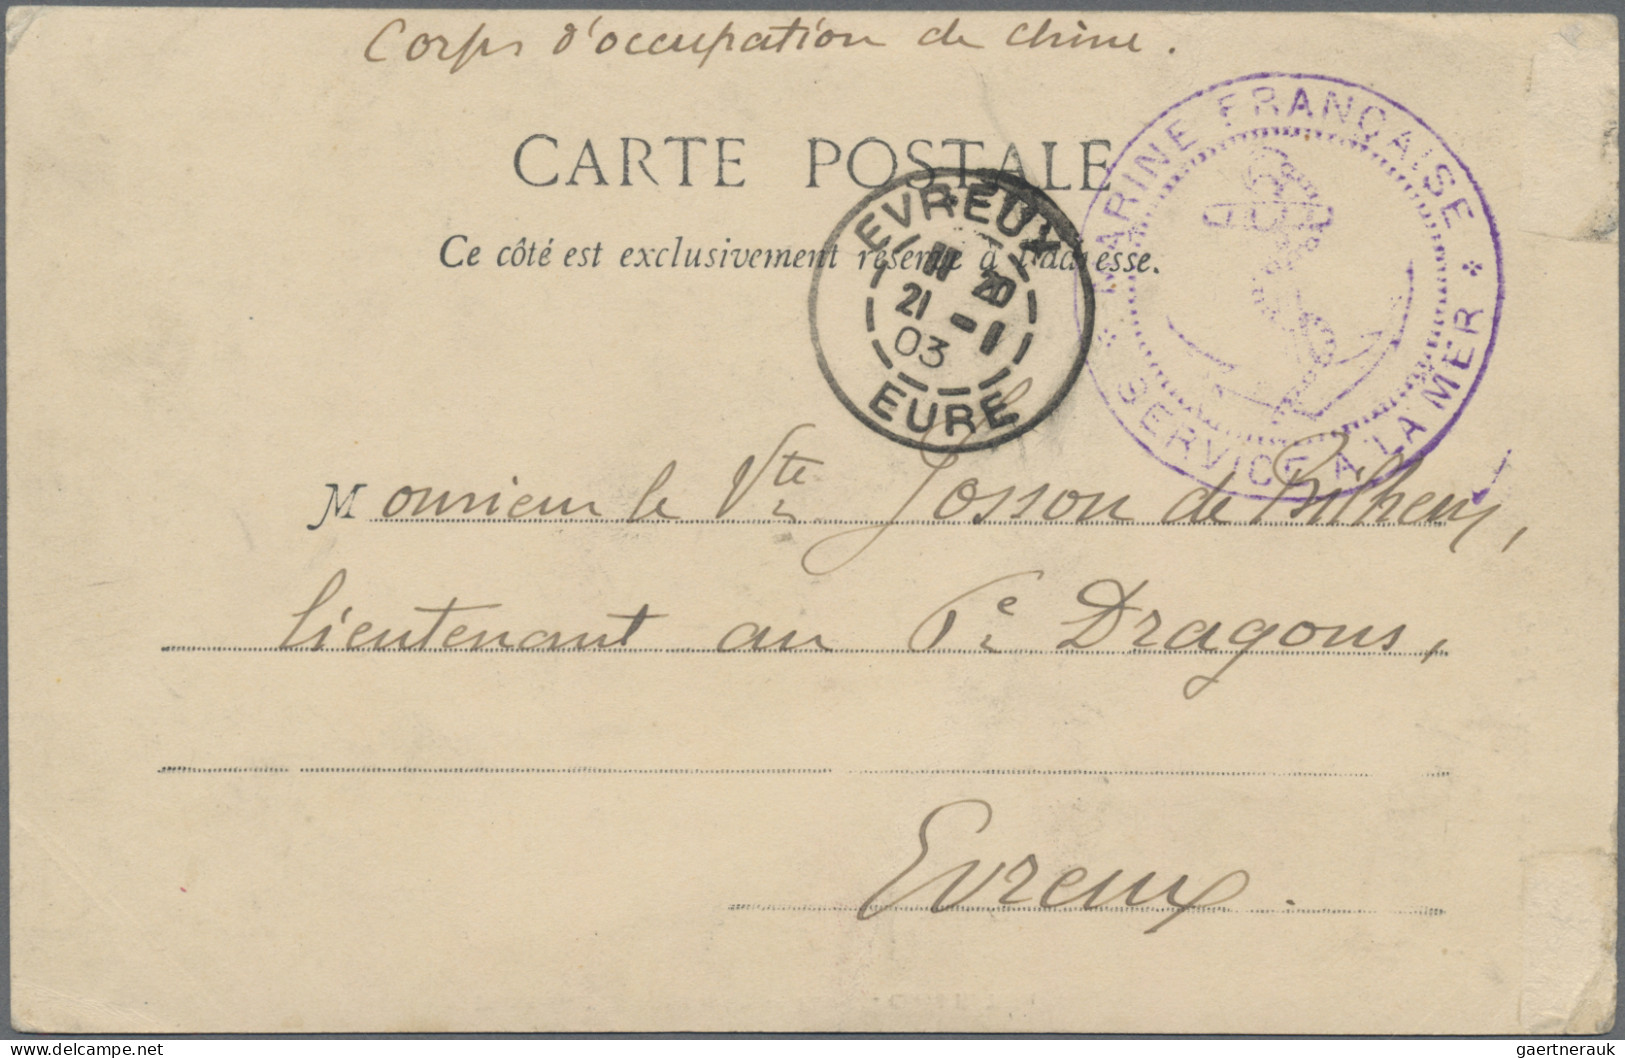 Corps d'occupation de Chine.
CARTE POSTALE
Ce côté est exclusivement réservé à l'adresse.
MARINE FRANÇAISE
SERVICE A LA MER
EVREUX
11 20
21 -1
03
EURE
Monsieur le Vte Josson de Bilhem,
lieutenant au 6e Dragons,
Evreux.
delcampe.net
gaertnerauk